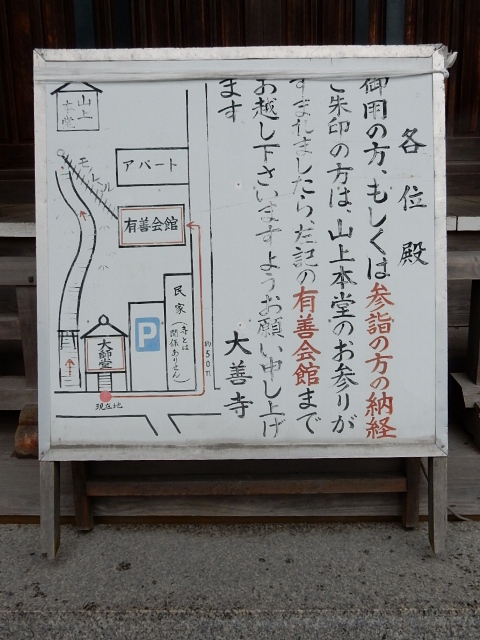 各位殿
御用の方、もしくは参詣の方の納経
ご朱印の方は、山上本堂のお参りが
すまれましたら、左記の有善会館まで
お越し下さいますようお願い申し上げ
ます
大善寺
山上
本堂
モノレール
アパート
有善会館
民家
(寺とは
関係ありせん)
P
大師堂
現在地
約50m